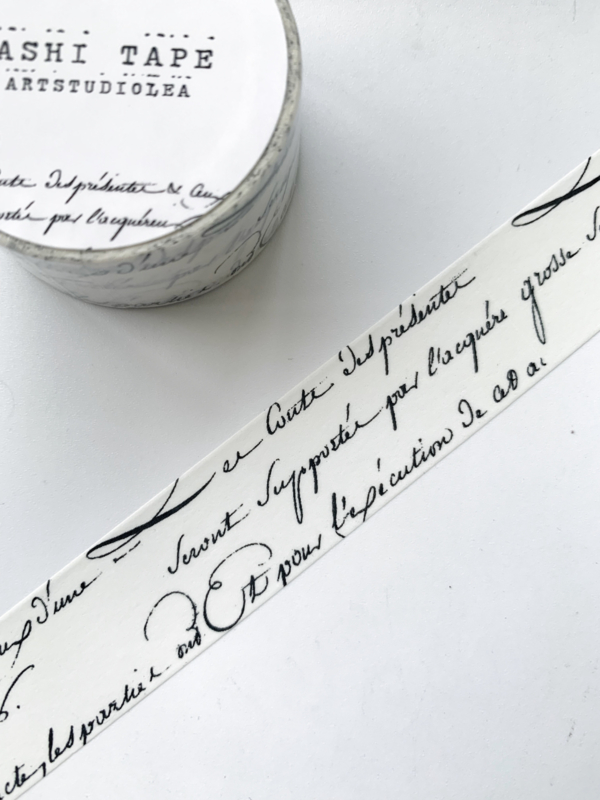 ASHI TAPE
ARTSTUDIOLEA
des présentes
par l'acquéreu
Coute des présentes
seront supportés par l'acquére grosse
Et pour l'exécution de
d'une
les parties